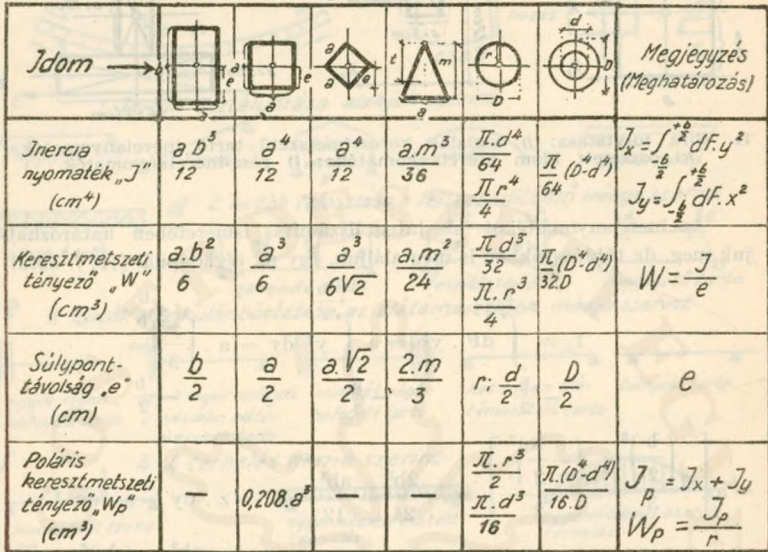 Idom → b e a a e a a e a t m a r D d D Megjegyzés
(Meghatározás)
Inercia nyomaték „J" (cm⁴) a b³/12 a⁴/12 a⁴/12 a.m³/36 π.d⁴/64 π r⁴/4 π/64 (D⁴-d⁴) Jₓ=∫₋b/2^+b/2 dF.y²
Jy=∫₋b/2^+b/2 dF.x²
Keresztmetszeti tényező „W" (cm³) a.b²/6 a³/6 a³/6√2 a.m²/24 π d³/32 π.r³/4 π/32D (D⁴-d⁴) W=J/e
Súlypont-távolság „e" (cm) b/2 a/2 a.√2/2 2.m/3 r: d/2 D/2 e
Poláris keresztmetszeti tényező „Wp" (cm³) — 0,208.a³ — — π.r³/2 π.d³/16 π.(D⁴-d⁴)/16.D Jp = Jx + Jy
Wp = Jp/r